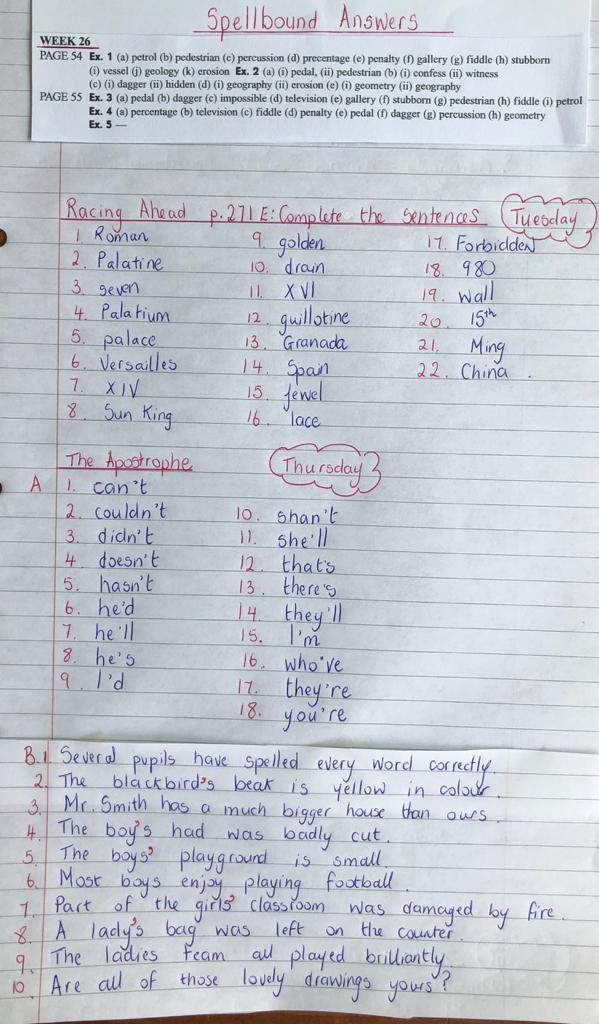 Spellbound Answers
WEEK 26
PAGE 54 Ex. 1 (a) petrol (b) pedestrian (c) percussion (d) precentage (e) penalty (f) gallery (g) fiddle (h) stubborn
(i) vessel (j) geology (k) erosion Ex. 2 (a) (i) pedal, (ii) pedestrian (b) (i) confess (ii) witness
(c) (i) dagger (ii) hidden (d) (i) geography (ii) erosion (e) (i) geometry (ii) geography
PAGE 55 Ex. 3 (a) pedal (b) dagger (c) impossible (d) television (e) gallery (f) stubborn (g) pedestrian (h) fiddle (i) petrol
Ex. 4 (a) percentage (b) television (c) fiddle (d) penalty (e) pedal (f) dagger (g) percussion (h) geometry
Ex. 5 —
Racing Ahead p.271 E: Complete the sentences Tuesday
1. Roman
2. Palatine
3. seven
4. Palatium
5. palace
6. Versailles
7. XIV
8. Sun King
9. golden
10. drain
11. XVI
12. guillotine
13. Granada
14. Spain
15. jewel
16. lace
17. Forbidden
18. 980
19. Wall
20. 15th
21. Ming
22. China.
The Apostrophe Thursday
A 1. can't
2. couldn't
3. didn't
4. doesn't
5. hasn't
6. he'd
7. he'll
8. he's
9. I'd
10. shan't
11. she'll
12. that's
13. there's
14. they'll
15. I'm
16. who've
17. they're
18. you're
B.1 Several pupils have spelled every word correctly.
2. The blackbird's beak is yellow in colour.
3. Mr. Smith has a much bigger house than ours.
4. The boy's had was badly cut.
5. The boys' playground is small.
6. Most boys enjoy playing football.
7. Part of the girls' classroom was damaged by fire.
8. A lady's bag was left on the counter.
9. The ladies team all played brilliantly.
10. Are all of those lovely drawings yours?